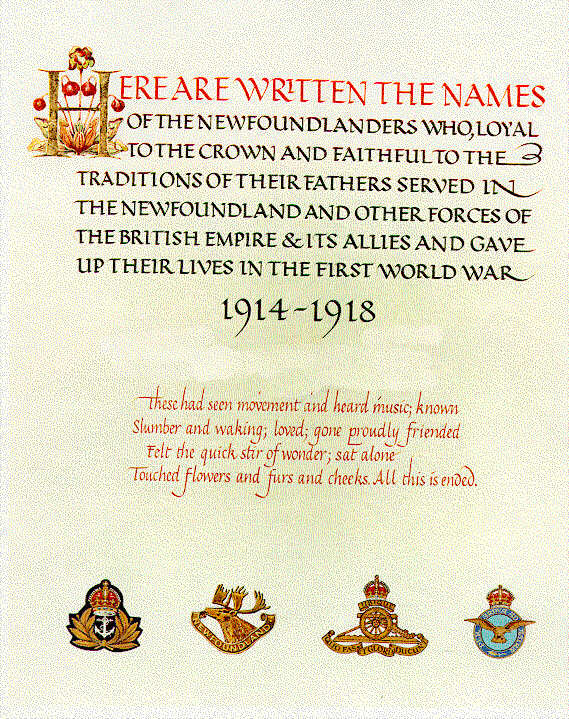 HERE ARE WRITTEN THE NAMES
OF THE NEWFOUNDLANDERS WHO, LOYAL
TO THE CROWN AND FAITHFUL TO THE
TRADITIONS OF THEIR FATHERS SERVED IN
THE NEWFOUNDLAND AND OTHER FORCES OF
THE BRITISH EMPIRE & ITS ALLIES AND GAVE
UP THEIR LIVES IN THE FIRST WORLD WAR
1914-1918
These had seen movement and heard music; known
Slumber and waking; loved; gone proudly friended
Felt the quick stir of wonder; sat alone
Touched flowers and furs and cheeks. All this is ended.
NEWFOUNDLAND
UBIQUE
QUO FAS ET GLORIA DUCUNT